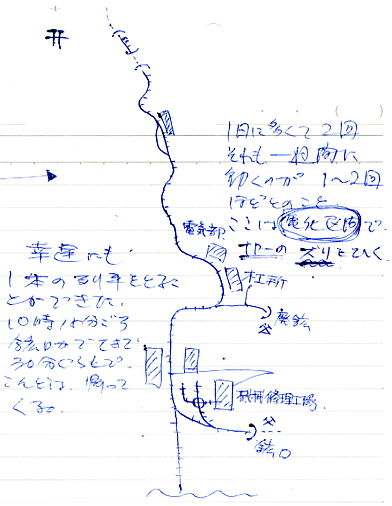 1日に多くて2回
それも一週間に
動くのが1〜2回
ほどとのこと。
ここは電化区間で、
ズリをひく。
電気部
幸運にも、
1本の列車をとること
ができた。
10時10分ごろ
鉱口がでてきて
30分ぐらいで、
こんどは、帰って
くる。
廃鉱
機械修理工場
鉱口